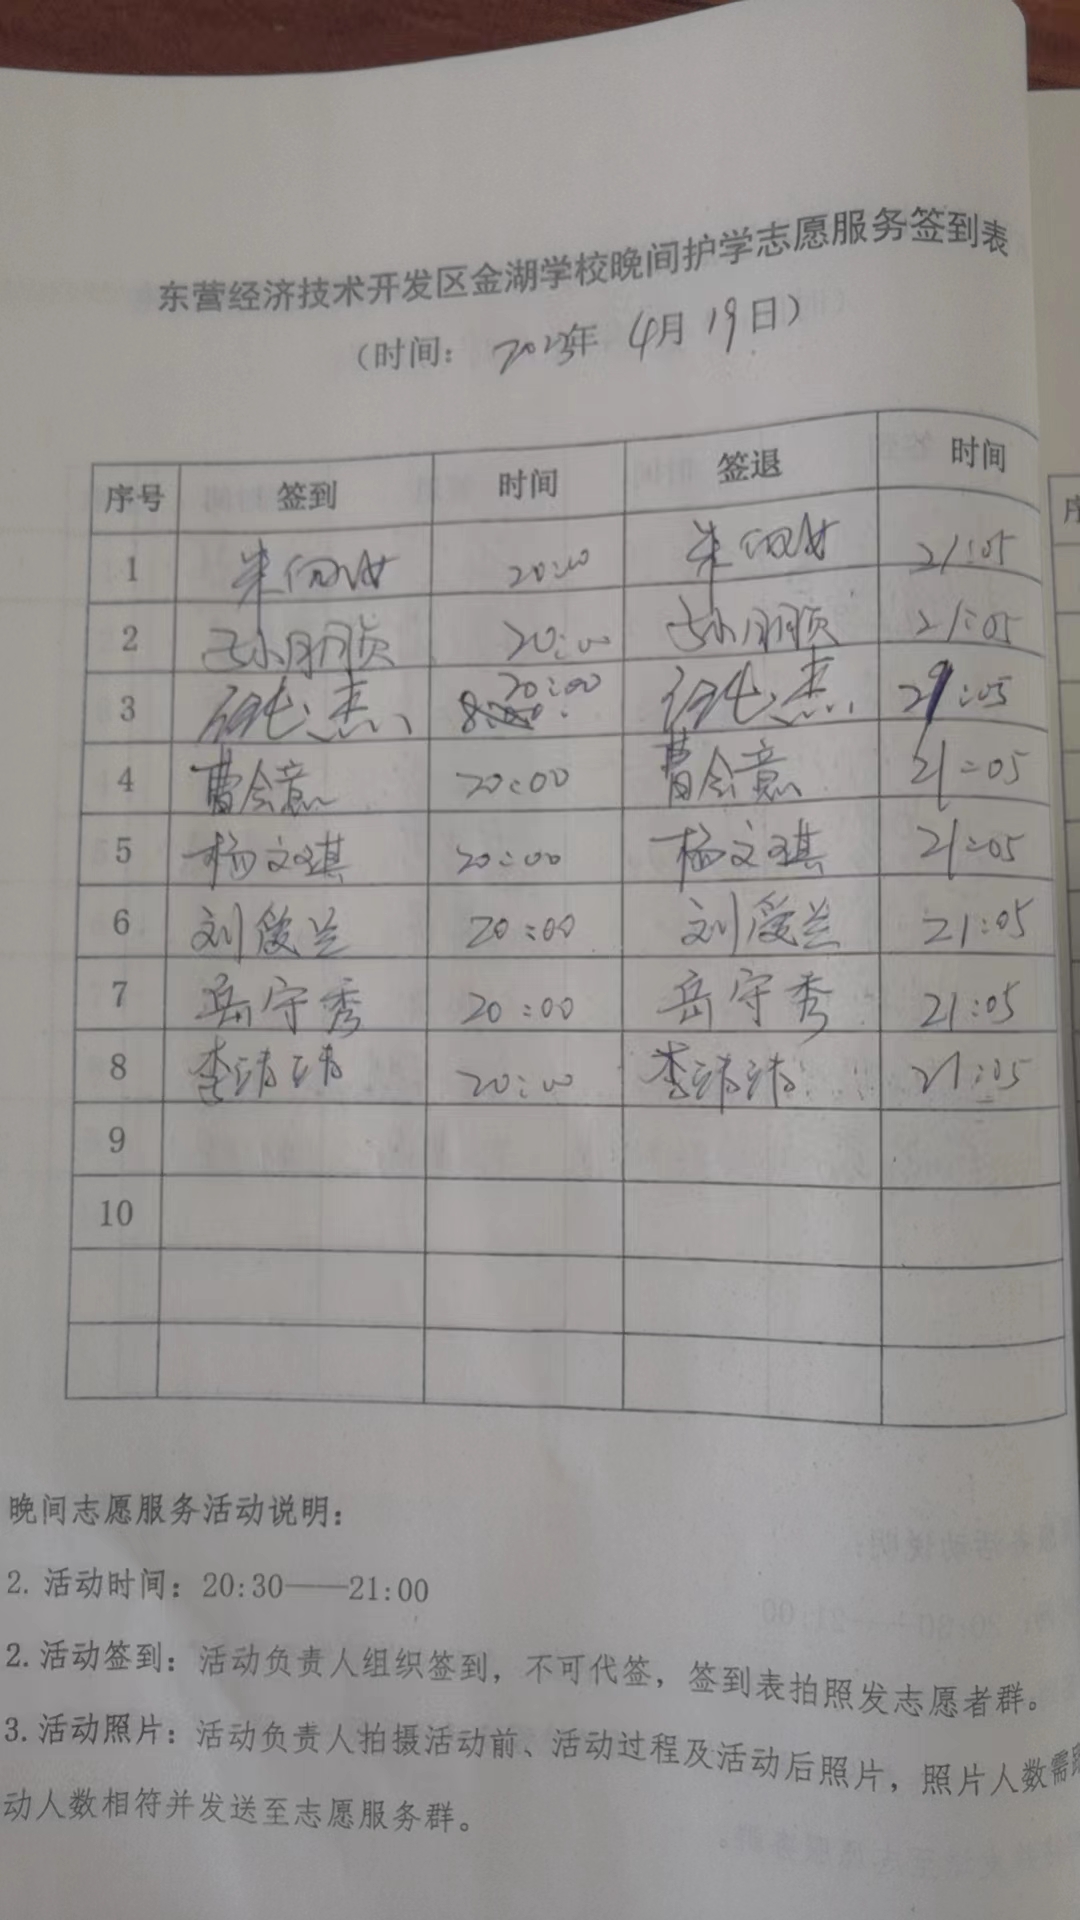 东营经济技术开发区金湖学校晚间护学志愿服务签到表
(时间: 2023年 4月 19日)
序号 签到 时间 签退 时间
1 20:00 21:05
2 20:00 21:05
3 20:00 21:05
4 曹会意 20:00 曹会意 21:05
5 杨文琪 20:00 杨文琪 21:05
6 刘爱兰 20:00 刘爱兰 21:05
7 岳守秀 20:00 岳守秀 21:05
8 李涛涛 20:00 李涛涛 21:05
9
10
晚间志愿服务活动说明:
2. 活动时间: 20:30——21:00
2. 活动签到: 活动负责人组织签到, 不可代签, 签到表拍照发志愿者群。
3. 活动照片: 活动负责人拍摄活动前、活动过程及活动后照片, 照片人数需
动人数相符并发送至志愿服务群。